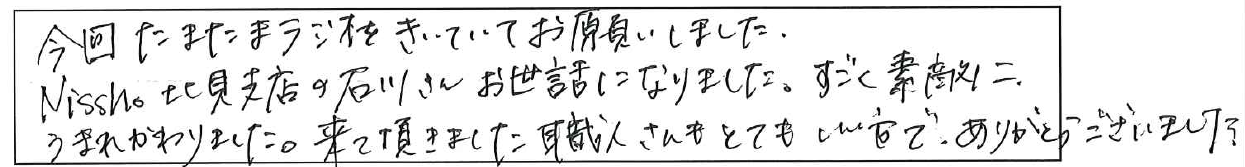 今回たまたまラジオをきいていてお願いしました.
Nissho 北見支店の石川さんお世話になりました。すごく素敵に
うまれかわりました。来て頂きました職人さんもとてもいい方で.ありがとうございました